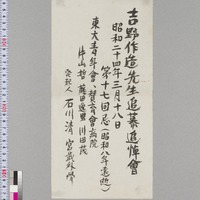 吉野作造先生追慕追悼會
昭和二十四年三月十八日
第十七回忌(昭和八年逝)
東大青年會、賛育會病院
片山哲 藤田逸男 川田茂
発起人 石川清